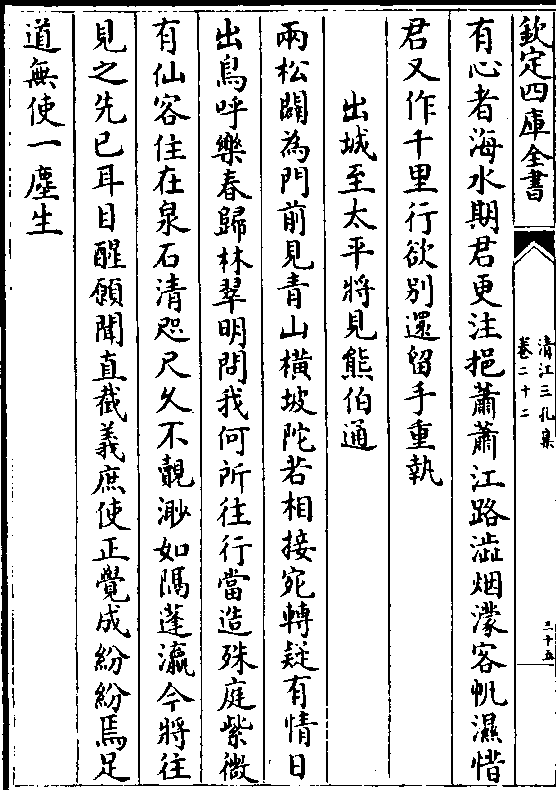 欽定四庫全書
清江三孔集
卷二十二
三十五
有心者海水期君更注挹蕭蕭江路澁烟濛客帆濕惜
君又作千里行欲別還留手重執
出城至太平將見熊伯通
兩松闢為門前見青山橫坡陀若相接宛轉疑有情日
出鳥呼樂春歸林翠明問我何所往行當造殊庭紫微
有仙客住在泉石清咫尺久不覿渺如隔蓬瀛今將往
見之先已耳目醒願聞直截義庶使正覺成紛紛焉足
道無使一塵生